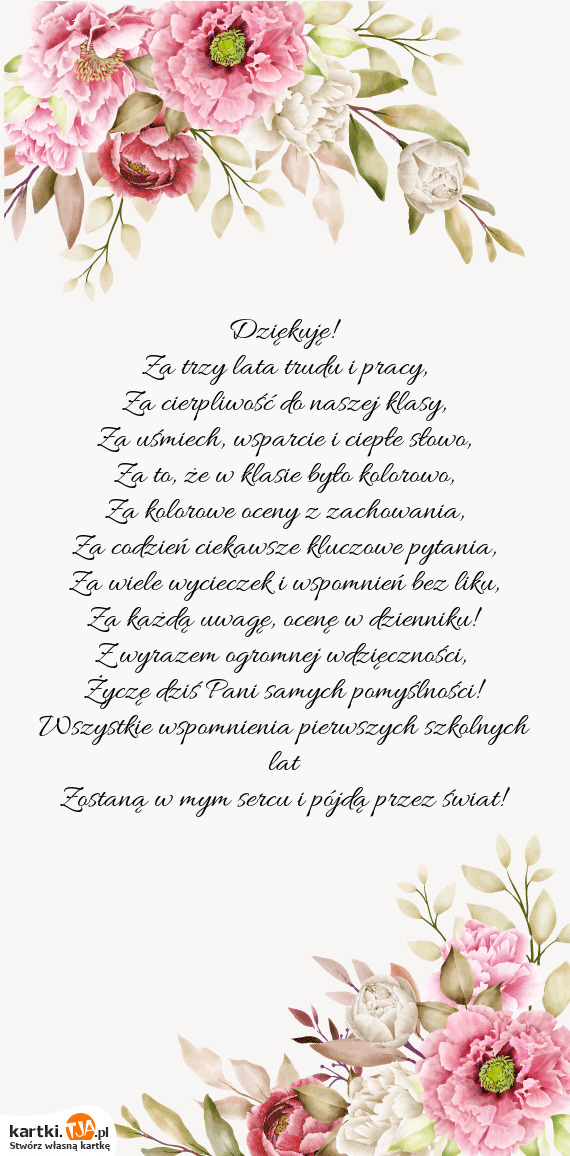 Dziękuję!
Za trzy lata trudu i pracy,
Za cierpliwość do naszej klasy,
Za uśmiech, wsparcie i ciepłe słowo,
Za to, że w klasie było kolorowo,
Za kolorowe oceny z zachowania,
Za codzień ciekawsze kluczowe pytania,
Za wiele wycieczek i wspomnień bez liku,
Za każdą uwagę, ocenę w dzienniku!
Z wyrazem ogromnej wdzięczności,
Życzę dziś Pani samych pomyślności!
Wszystkie wspomnienia pierwszych szkolnych
lat
Zostaną w mym sercu i pójdą przez świat!
kartki.TJA.pl
Stwórz własną kartkę